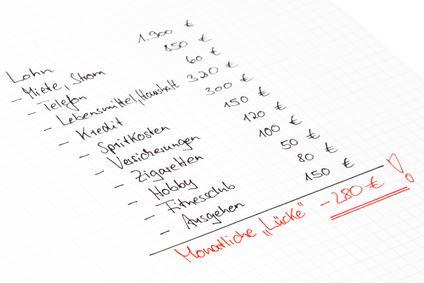 Lohn 1.900 €
- Miete, Strom 850 €
- Telefon 60 €
- Lebensmittel, Haushalt 320 €
- Kredit 300 €
- Spritkosten 150 €
- Versicherungen 120 €
- Zigaretten 100 €
- Hobby 50 €
- Fitnessclub 80 €
- Ausgehen 150 €
Monatliche „Lücke" - 280 € !